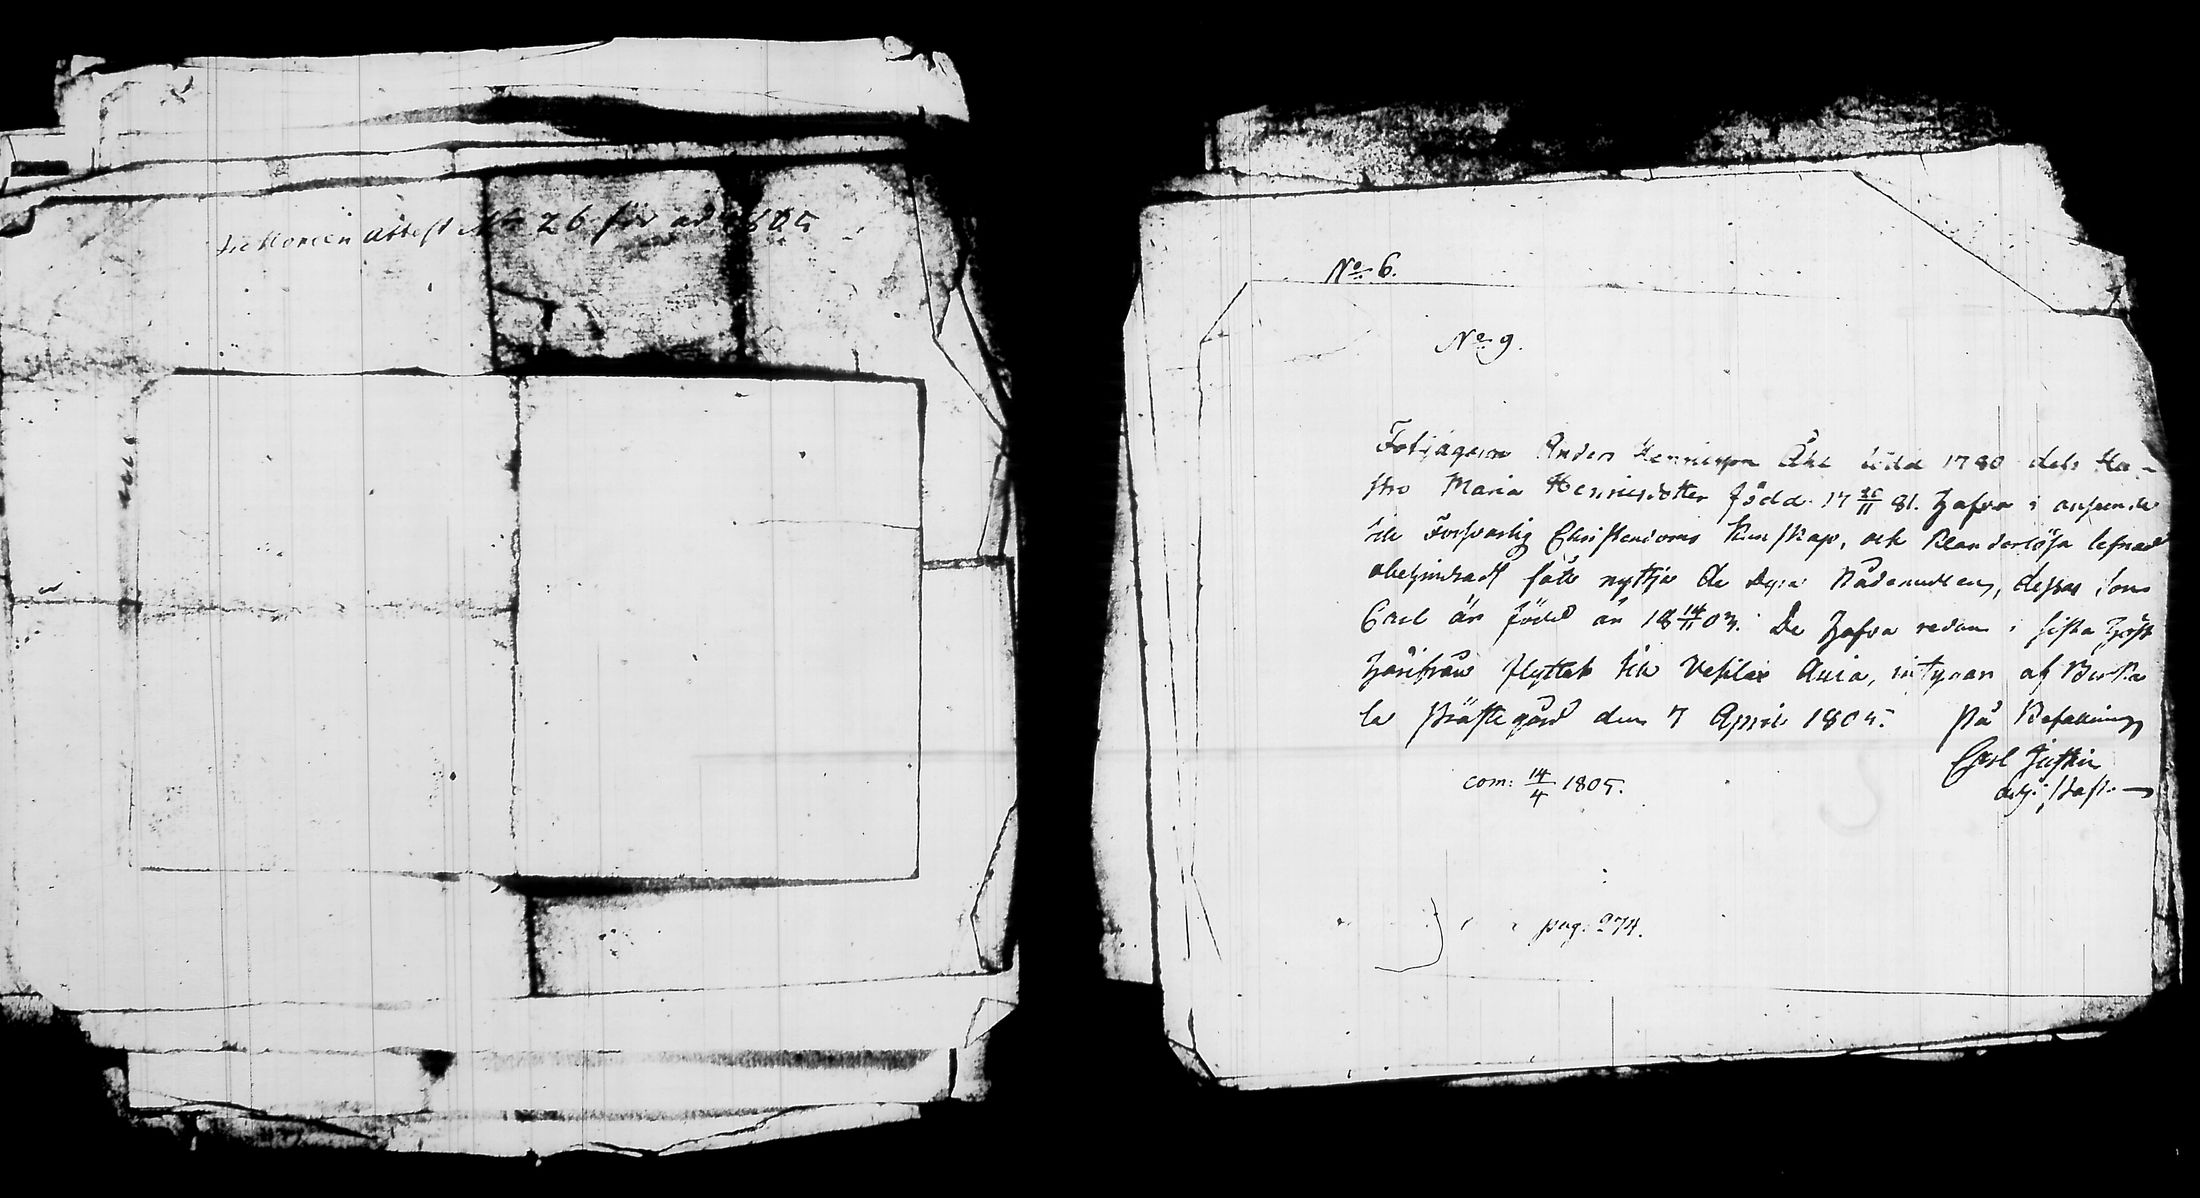 attest No 26 för år 1805
No 6.
No 9.
Fotjägaren Anders Henricsson Åhl född 1780 dess Hu-
stro Maria Henricsdotter född 17 26/11 81. hafva i anseende
till Försvarlig Christendoms kunskap, och Klanderlösa lefnad
obehindradt fått nyttja de Dyra Nådemedlen, dessas Son
Carl är född år 18 14/11 03. De hafva redan i sista höst
härifrån flyttat till Vesilax intygar af Birka
la Prästegård den 7 April 1805. På Befallning
Carl
adj:
com: 14/4 1805.
pag: 274.